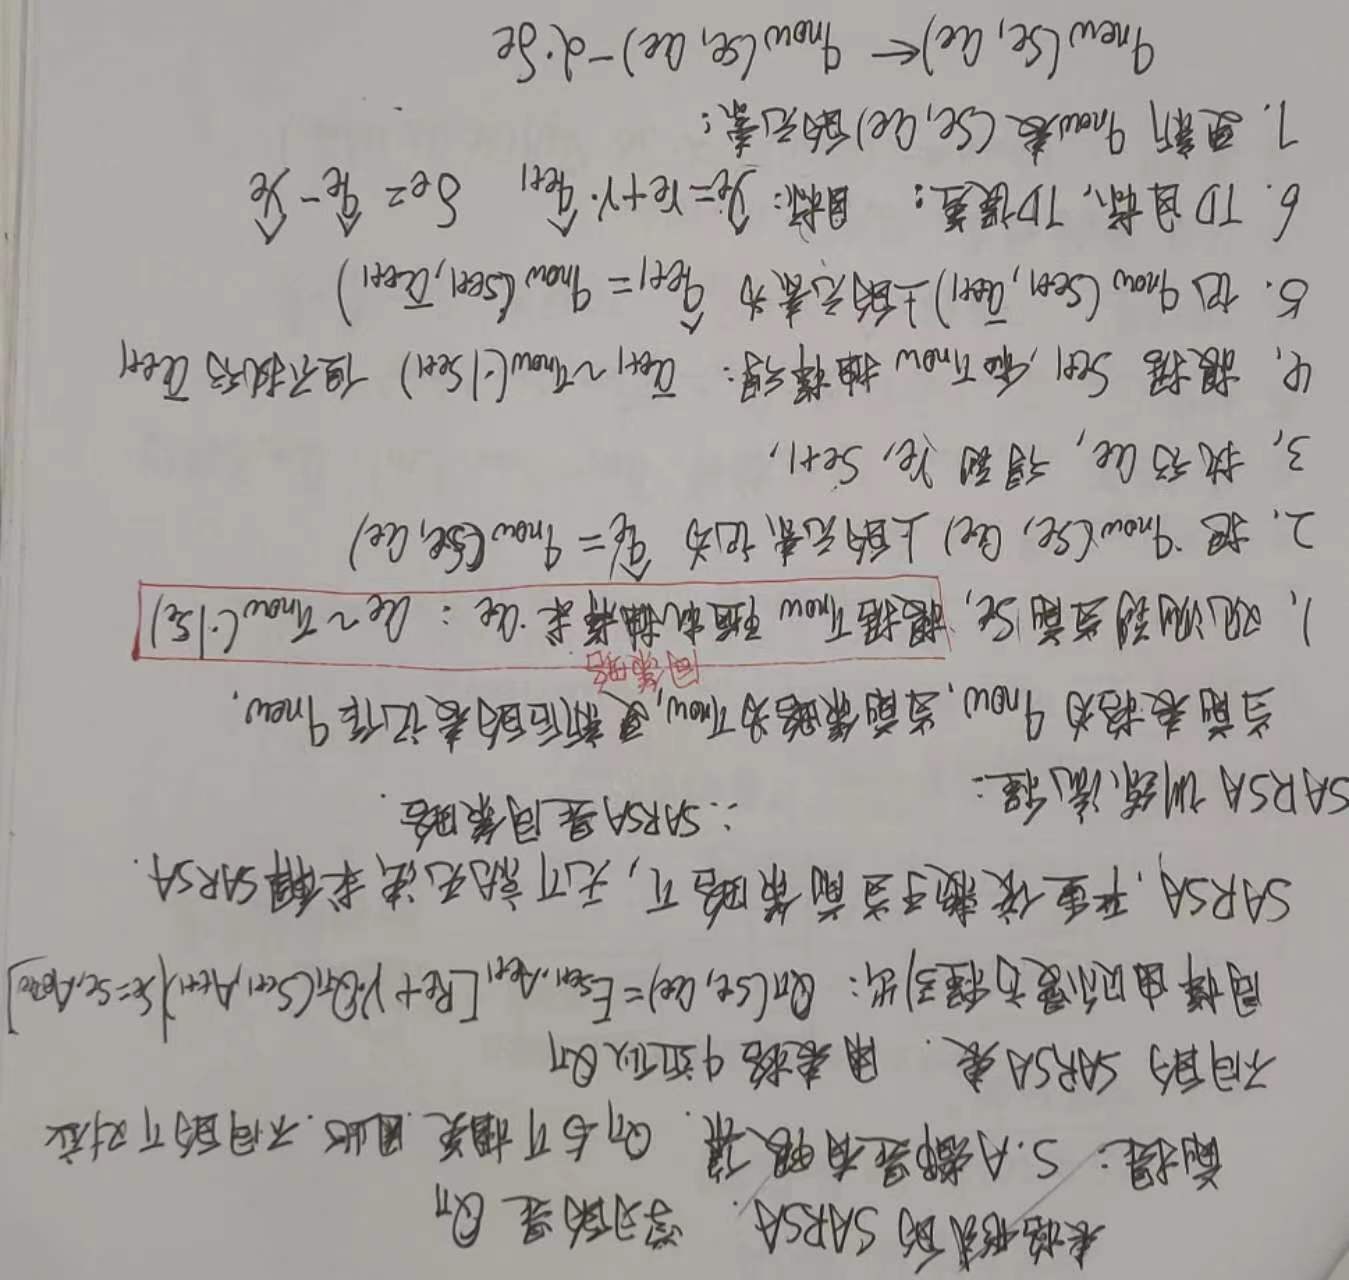 表格形式的 SARSA. 学习的是 Qπ
前提: S.A都是有限集. Qπ与π相关. 因此. 不同的π对应
不同的 SARSA表. 用表格q近似Qπ
同样由贝尔曼方程引出: Qπ(st, at) = E_{St+1, At+1}[Rt + γ·Qπ(St+1, At+1) | St=st, At=at]
SARSA, 严重依赖于当前策略π, 无π就无法求解SARSA.
∴ SARSA是同策略.
SARSA训练流程:
当前表格为qnow, 当前策略为πnow, 更新后的表记作qnew.
同策略
1, 观测到当前st, 根据πnow随机抽样来at: at ~ πnow(·|st)
2, 把qnow(st, at)上的元素, 记为 q̂t = qnow(st, at)
3, 执行at, 得到 rt, st+1,
4, 根据 st+1 和πnow抽样得: ãt+1 ~ πnow(·|st+1) 但不执行ãt+1
5. 记qnow(st+1, ãt+1)上的元素为 q̂t+1 = qnow(st+1, ãt+1)
6. TD目标, TD误差: 目标: ŷt = rt + γ·q̂t+1 δt = q̂t - ŷt
7. 更新qnow表(st, at)的元素:
qnew(st, at) ← qnow(st, at) - α·δt